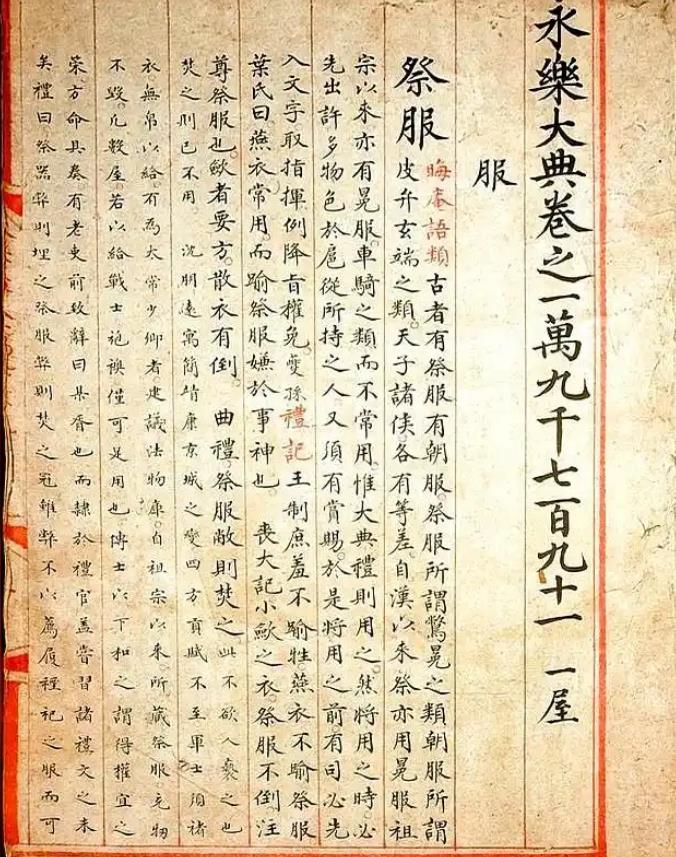 永樂大典卷之一萬九千七百九十一 一屋
服
祭服 晦庵語類古者有祭服有朝服祭服所謂鷩冕之類朝服所謂
皮弁玄端之類天子諸侯各有等差自漢以來祭亦用冕服祖
宗以來亦有冕服車騎之類而不常用惟大典禮則用之然將用之時必
先出許多物色於扈從所持之人又須有賞賜於是將用之前有司必先
入文字取指揮例降旨權免夔孫禮記王制庶羞不踰牲燕衣不踰祭服
葉氏曰燕衣常用而踰祭服嫌於事神也 喪大記小歛之衣祭服不倒注
尊祭服也歛者要方散衣有倒 曲禮祭服敝則焚之此不欲人褻之也
焚之則已不用 沈明遠寓簡靖康京城之變四方貢賦不至軍士須褚
衣無帛以給有為太常少卿者建議法物庫自祖宗以來所藏祭服充牣
不毀凡數屋若以給戰士袍襖僅可足用也博士以下和之謂得權宜之
榮方命具奏有老吏前致辭曰某胥也而隸於禮官蓋嘗習諸禮文之末
矣禮曰祭器弊則埋之祭服弊則焚之冠雖弊不以薦履禋祀之服而可